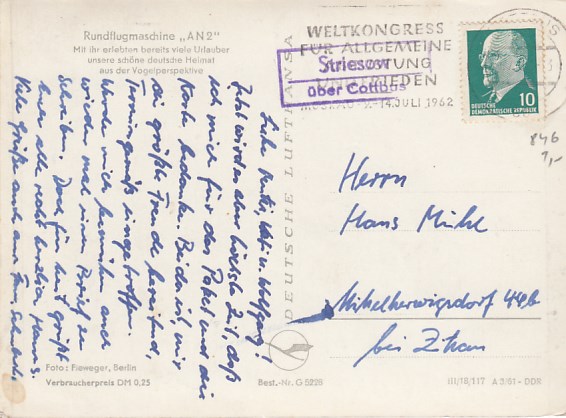 Rundflugmaschine „AN 2"
Mit ihr erlebten bereits viele Urlauber
unsere schöne deutsche Heimat
aus der Vogelperspektive
WELTKONGRESS
FÜR ALLGEMEINE
ABRÜSTUNG
UND FRIEDEN
MOSKAU 9.-14. JULI 1962
Striesow
über Cottbus
DEUTSCHE
DEMOKRATISCHE REPUBLIK
10
846
1,-
DEUTSCHE LUFTHANSA
Liebe u. Wolfgang!
Jetzt wird es aber höchste Zeit, daß
ich mich für das Paket und die
Karte bedanke. Beides ist, mir
die größte Freude bereitend,
termingemäß eingetroffen.
Werde mich bemühen auch
wieder mal einen Brief zu
schreiben. Doch für heut grüßt
Euer alle recht herzlich, Hanns.
Viele Grüße auch an Fam.
Herrn
Hans Mühl
Mittelherwigsdorf 44b
bei Zittau
Foto: Fieweger, Berlin
Verbraucherpreis DM 0,25
Best.-Nr. G 5228
III/18/117 A 3/61 - DDR